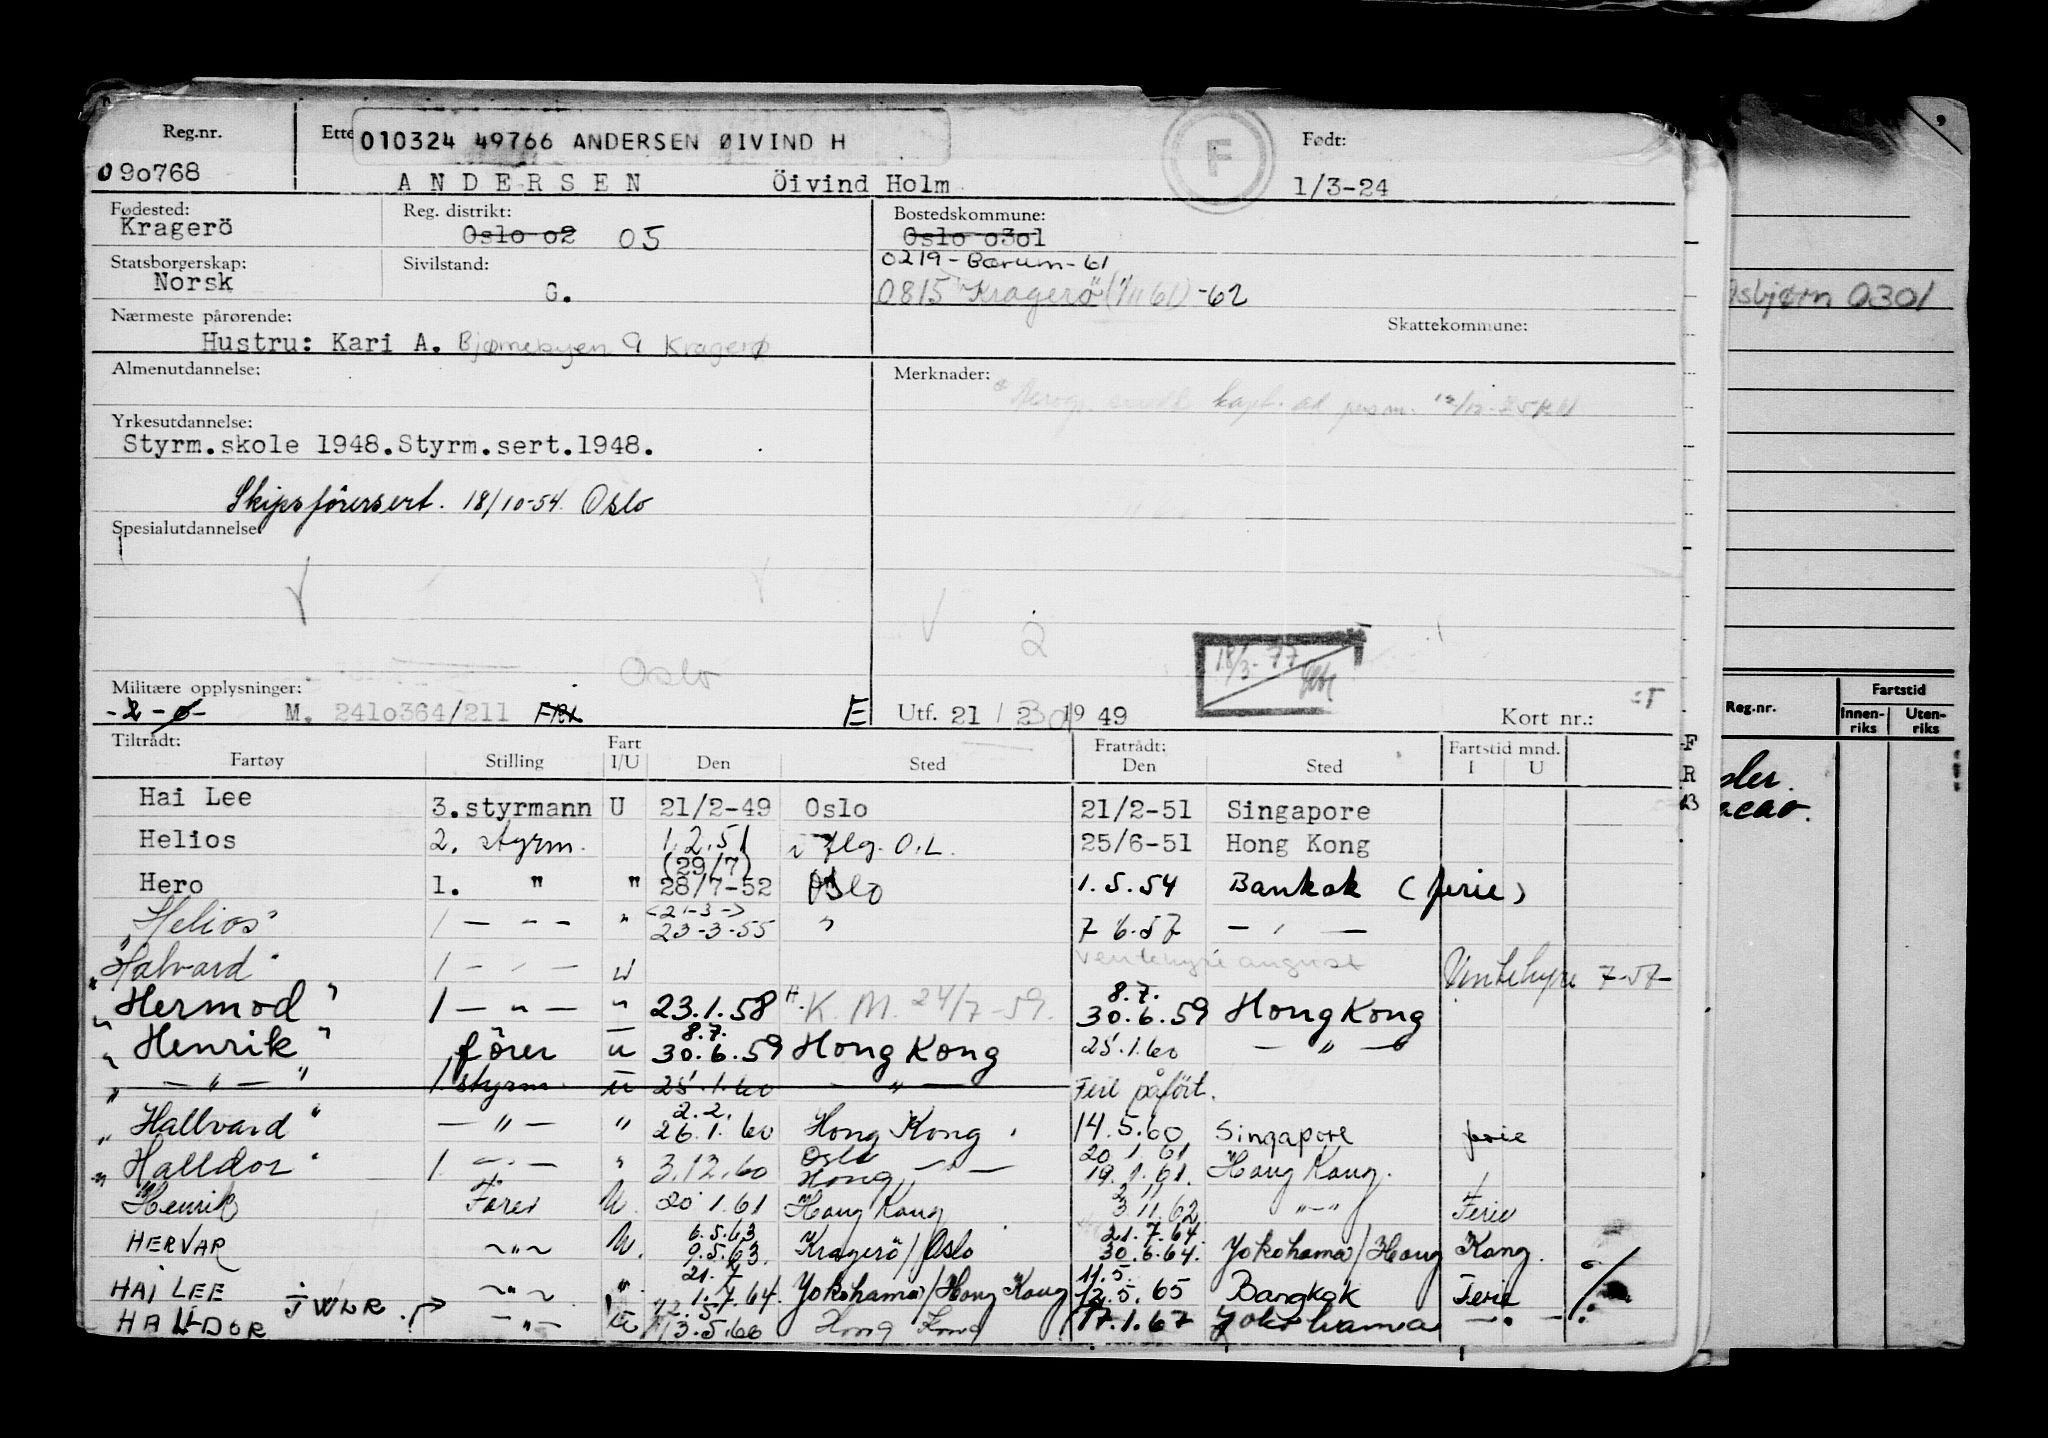 Reg.nr.
Ette
010324 49766 ANDERSEN ØIVIND H
F
Født:
090768
ANDERSEN Öivind Holm
1/3-24
Fødested:
Kragerö
Reg. distrikt:
Oslo 02 05
Bostedskommune:
Oslo 0301
0219 - Bærum - 61
0815 "Kragerö" (1/11 61) - 62
Statsborgerskap:
Norsk
Sivilstand:
G.
Nærmeste pårørende:
Hustru: Kari A. Bjørnebyen 9 Kragerø
Skattekommune:
Almenutdannelse:
Merknader:
Yrkesutdannelse:
Styrm.skole 1948.Styrm.sert.1948.
Skipsförersert. 18/10-54. Oslo
Spesialutdannelse:
2
18/3-77
Oslo
Militære opplysninger:
M. 2410364/211
E
Utf. 21 / 2 19 49
Kort nr.:
Tiltrådt:
Fartøy Stilling Fart I/U Den Sted Fratrådt: Den Sted Fartstid mnd. I U
Hai Lee 3.styrmann U 21/2-49 Oslo 21/2-51 Singapore
Helios 2. styrm. 1.2.51 i flg. O.L. 25/6-51 Hong Kong
(29/7)
Hero 1. " " 28/7-52 Oslo 1.5.54 Bankok (ferie)
<21-3->
"Helios" 1 — " — " 23-3-55 " 7 6.57 — " —
"Halvard" 1 — " — U Ventehyre august Ventehyre 7-57-
8.7.
"Hermod" 1 — " — " 23.1.58 H.K. M. 24/7-59. 30.6.59 Hong Kong
8.7.
"Henrik" förer u 30.6.59 Hong Kong 25.1.60 — " —
" — " — " 1 styrm. u 25.1.60 — " — Ferie påfört.
2.2.
"Hallvard" — " — " 26.1.60 Hong Kong 14.5.60 Singapore ferie
Oslo 20.1.61
"Halldor" 1. — " — " 3.12.60 Hong — " — 19.1.61. Hong Kong.
2 11
Henrik Förer U. 20.1.61 Hong Kong 3 11.62 " — " Ferie
6.5.63 21.7.64
HERVAR ~ " ~ U. 9.5.63. Kragerö/Oslo 30.6.64. Yokohama/Hong Kong.
21.7 11.5.
HAI LEE ~ " ~ " 1.7.64. Yokohama/Hong Kong 12.5.65 Bangkok Ferie
HALLDOR JWLR — " — U 13.5.66 Hong Kong 17.1.67 Yokohama — " —
F
R
B
Asbjørn 0301
Reg.nr.
Fartstid
Innen-
riks
Uten-
riks